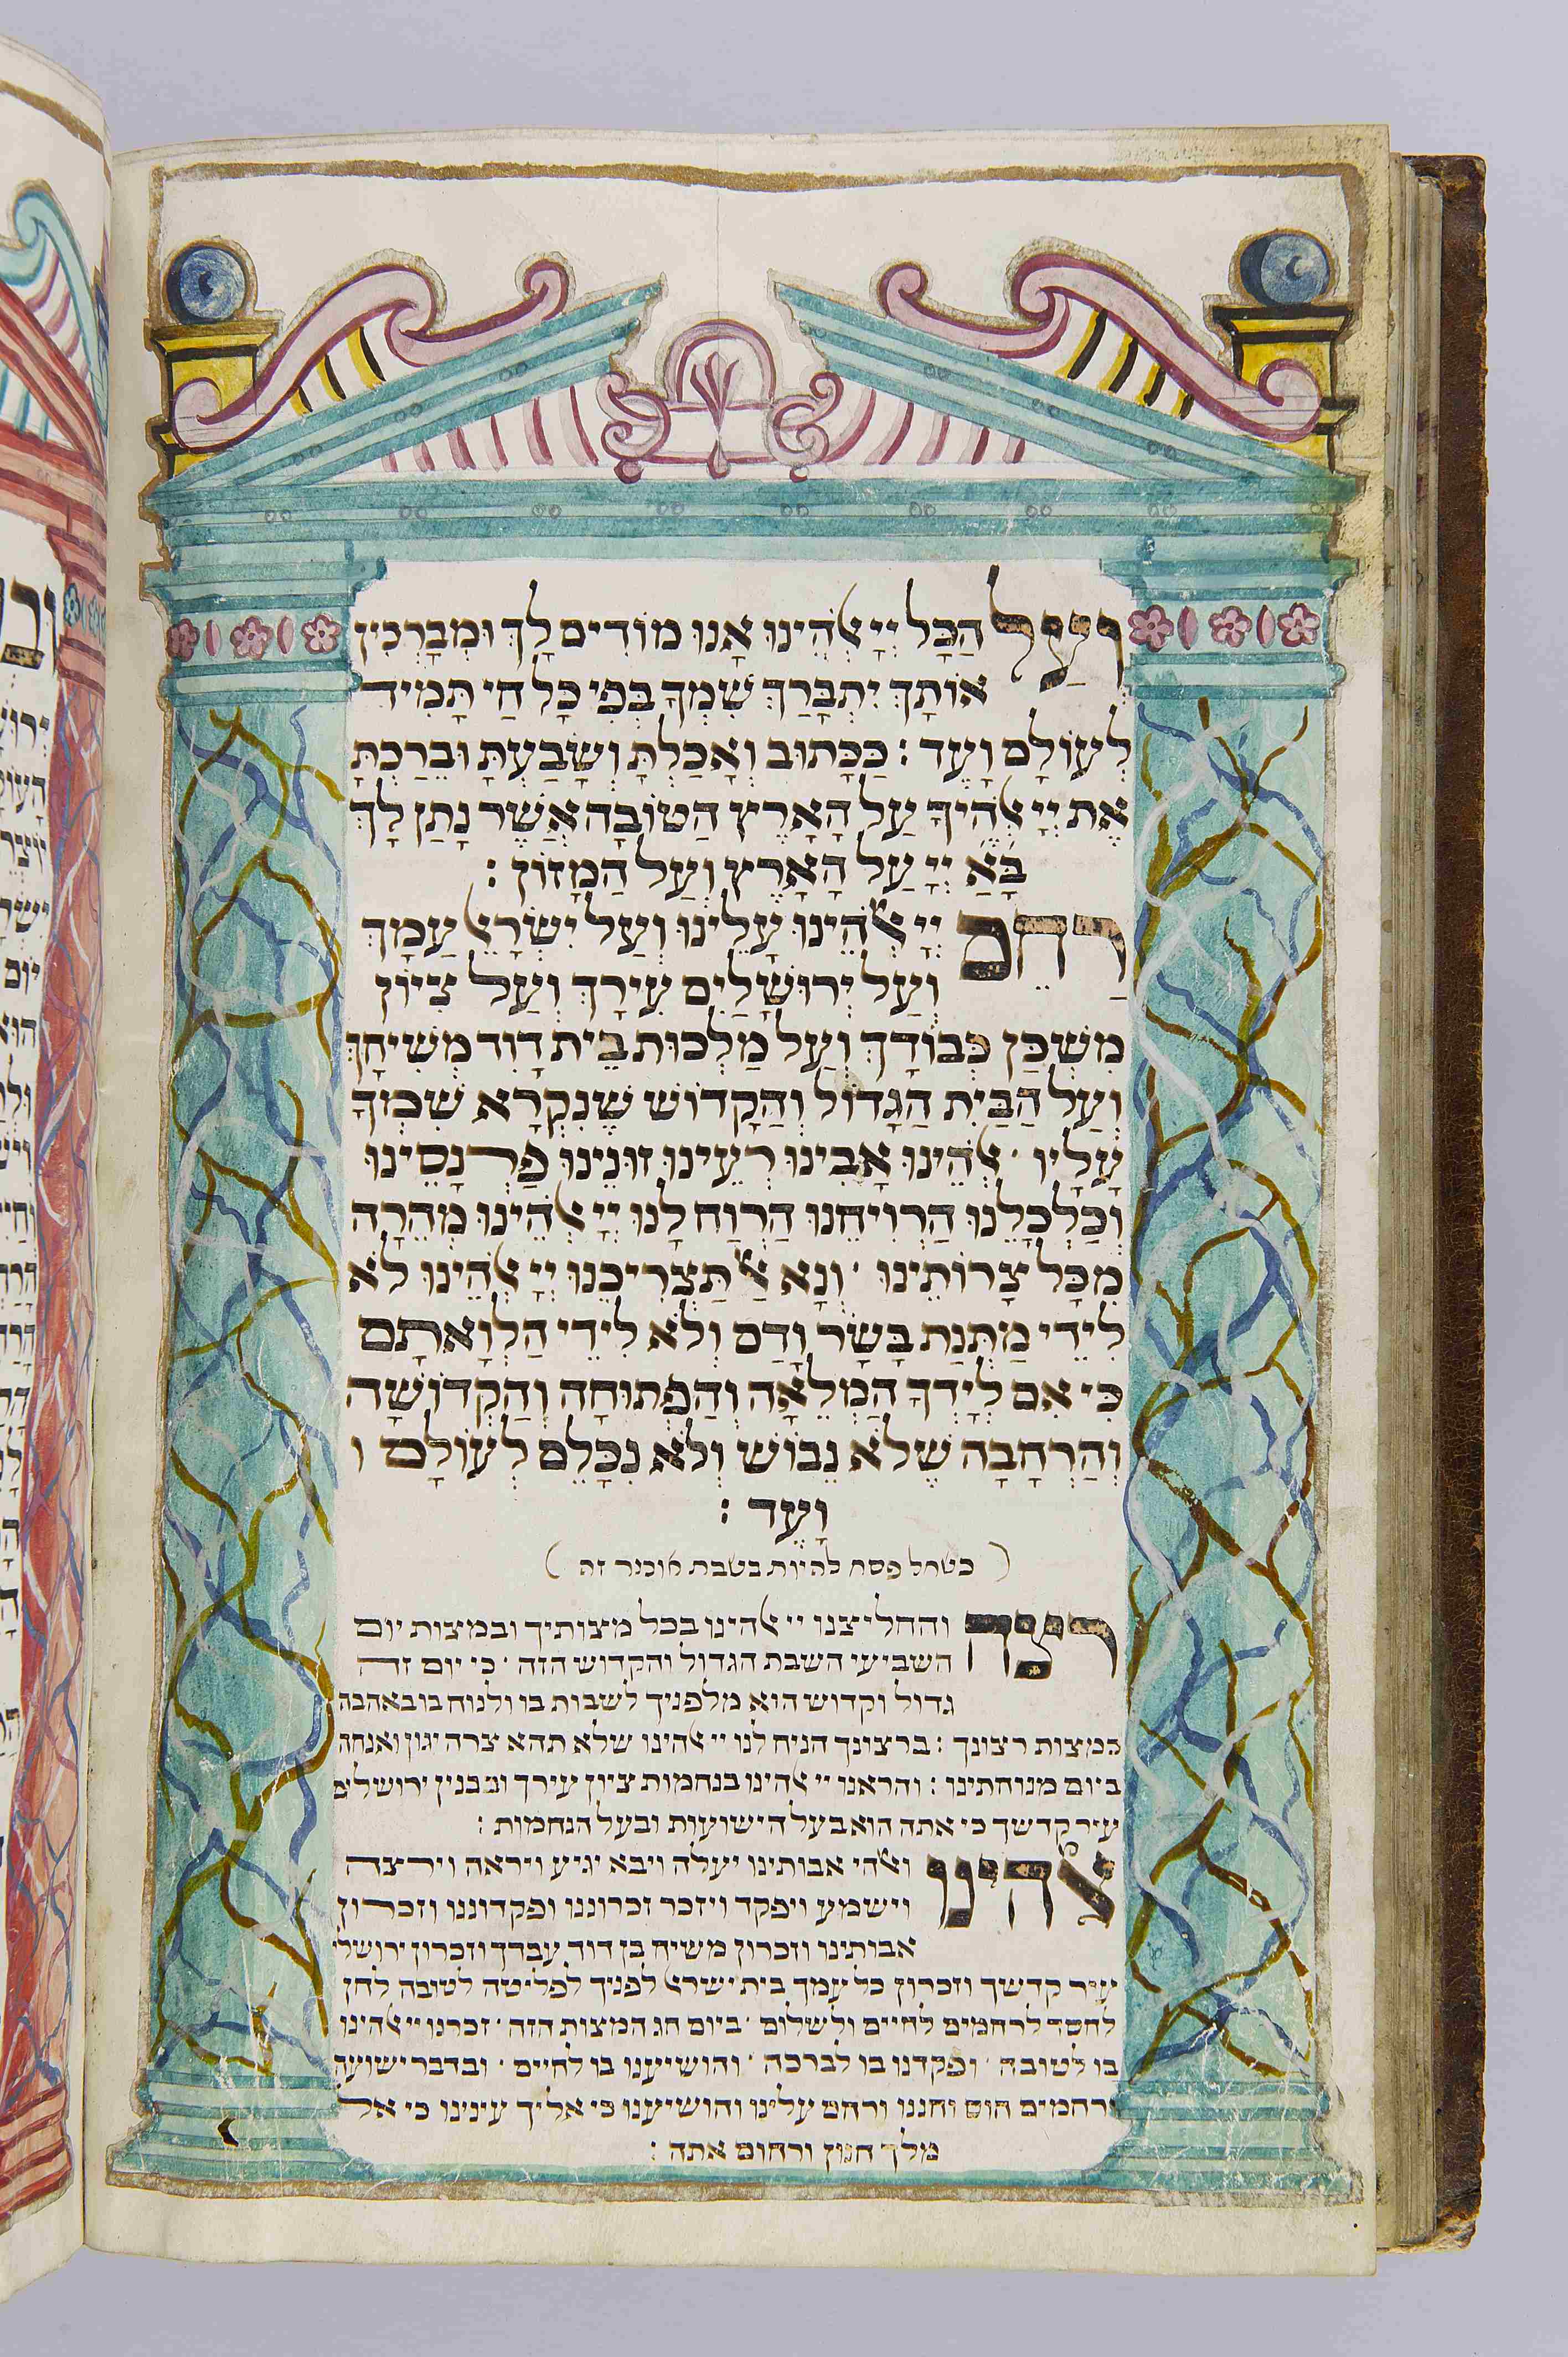 וְעַל הַכָּל יְיָ אֱלֹהֵינוּ אָנוּ מוֹדִים לָךְ וּמְבָרְכִין
אוֹתָךְ יִתְבָּרַךְ שִׁמְךָ בְּפִי כָּל חַי תָּמִיד
לְעוֹלָם וָעֶד : כַּכָּתוּב וְאָכַלְתָּ וְשָׂבַעְתָּ וּבֵרַכְתָּ
אֶת יְיָ אֱלֹהֶיךָ עַל הָאָרֶץ הַטּוֹבָה אֲשֶׁר נָתַן לָךְ
בָּאַ יְיָ עַל הָאָרֶץ וְעַל הַמָּזוֹן :
רַחֵם יְיָ אֱלֹהֵינוּ עָלֵינוּ וְעַל יִשְׂרָאֵל עַמָּךְ
וְעַל יְרוּשָׁלַיִם עִירָךְ וְעַל צִיּוֹן
מִשְׁכַּן כְּבוֹדָךְ וְעַל מַלְכוּת בֵּית דָוִד מְשִׁיחָךְ
וְעַל הַבַּיִת הַגָּדוֹל וְהַקָּדוֹשׁ שֶׁנִקְרָא שִׁמְךָ
עָלָיו ׳ אֱלֹהֵינוּ אָבִינוּ רְעֵינוּ זוּנֵינוּ פַּרְנָסֵינוּ
וְכַלְכָּלֵנוּ הַרְוִיחֵנוּ הַרְוַח לָנוּ יְיָ אֱלֹהֵינוּ מְהֵרָה
מִכָּל צָרוֹתֵינוּ ׳ וְנָא אַל תַּצְרִיכֵנוּ יְיָ אֱלֹהֵינוּ לֹא
לִידֵי מַתְּנַת בָּשָׂר וָדַם וְלֹא לִידֵי הַלְוָאתָם
כִּי אִם לְיָדְךָ הַמְלֵאָה וְהַפְּתוּחָה וְהַקְדוֹשָׁה
וְהָרְחָבָה שֶׁלֹא נֵבוֹשׁ וְלֹא נִכָּלֵם לְעוֹלָם ו
וָעֶד :
( כשחל פסח להיות בשבת אומר זה )
רצה והחליצנו יי אלהינו בכל מצותיך ובמצות יום
השביעי השבת הגדול והקדוש הזה ׳ כי יום זה
גדול וקדוש הוא מלפניך לשבות בו ולנוח בו באהבה
כמצות רצונך : ברצונך הניח לנו יי אלהינו שלא תהא צרה יגון ואנחה
ביום מנוחתינו : והראנו יי אלהינו בנחמות ציון עירך ובבנין ירושלים
עיר קדשך כי אתה הוא בעל הישועות ובעל הנחמות :
אלהינו ואלהי אבותינו יעלה ויבא יגיע ויראה וירצה
וישמע ויפקד ויזכר זכרוננו ופקדוננו וזכרון
אבותינו וזכרון משיח בן דוד עבדך וזכרון ירושלי
עיר קדשך וזכרון כל עמך בית ישראל לפניך לפליטה לטובה לחן
לחסד לרחמים לחיים ולשלום ׳ ביום חג המצות הזה ׳ זכרנו יי אלהינו
בו לטובה ׳ ופקדנו בו לברכה ׳ והושיענו בו לחיים ׳ ובדבר ישועה
ורחמים חוס וחננו ורחם עלינו והושיענו כי אליך עינינו כי אל
מלך חנון ורחום אתה :